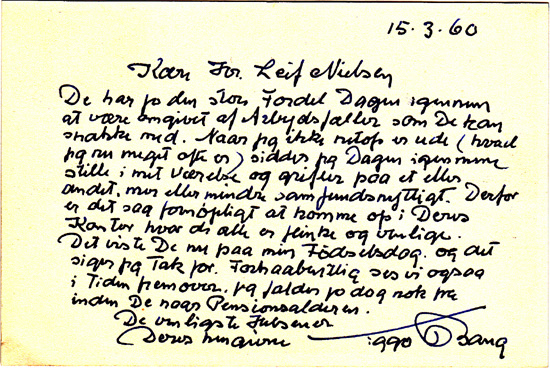 15.3.60
Kære Fr. Leif Nielsen
De har jo den store Fordel Dagen igennem
at være omgivet af Arbejdsfæller som De kan
snakke med. Naar jeg ikke netop er ude (hvad
jeg nu meget ofte er) sidder jeg Dagen igennem
stille i mit Værelse og paa et eller
andet, mer eller mindre samfundsnyttigt. Derfor
er det saa fornøjeligt at komme op i Deres
Kontor hvor di alle er flinke og venlige.
Det viste De nu paa min Födselsdag. og det
siger jeg Tak for. Forhaabentlig ses vi ogsaa
i Tiden fremover, jeg falder jo dog nok fra
inden De naar Pensionsalderen.
De venligste Hilsener
Deres hengivne iggo Bang